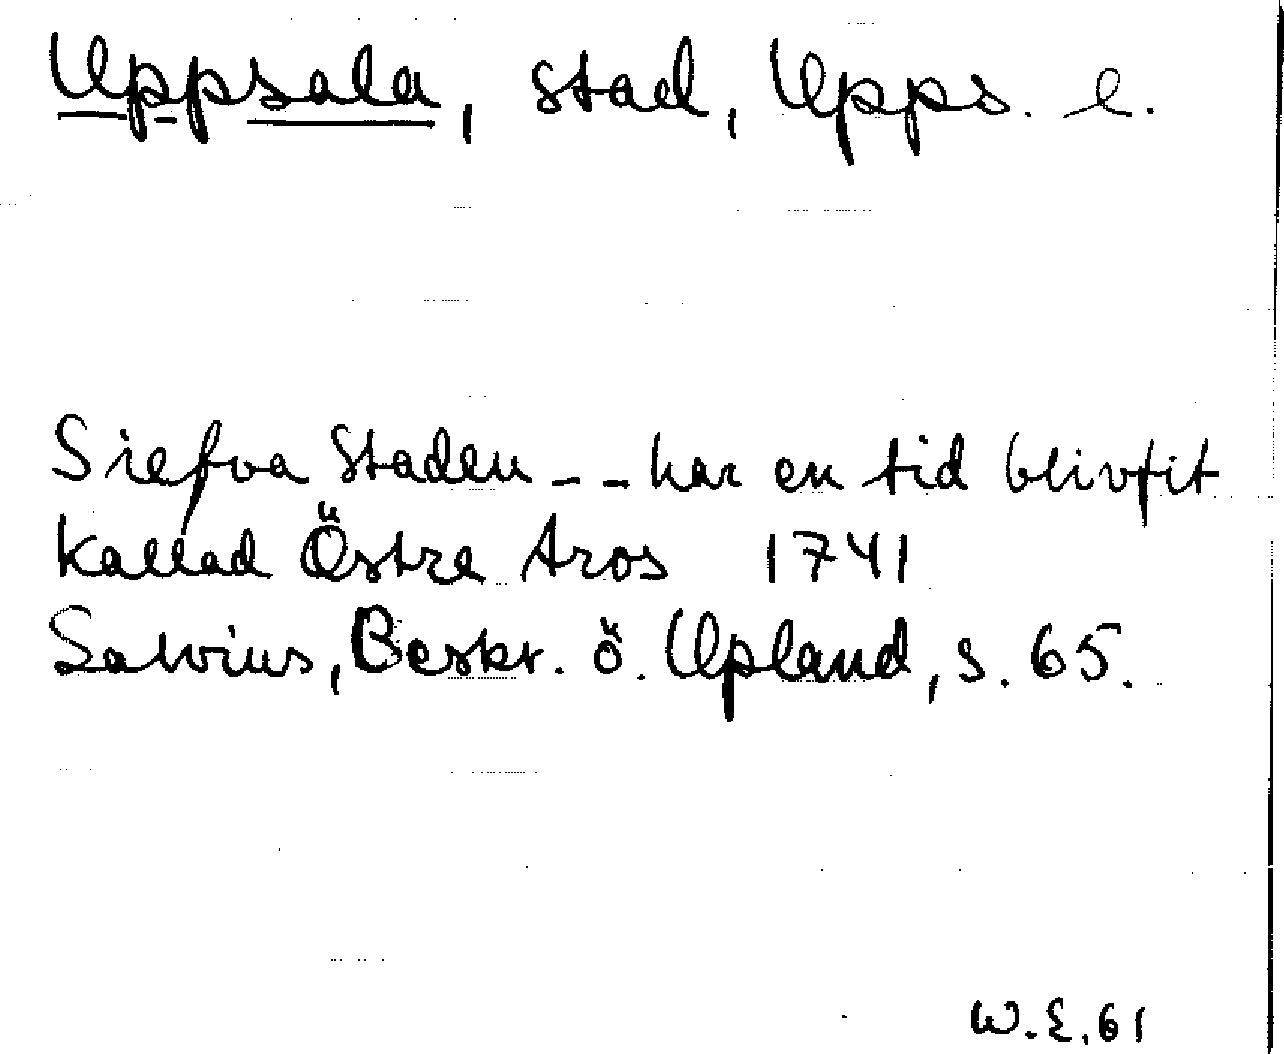 Uppsala, stad, Upps. l.
Siefva Staden _ _ har en tid blivfit
kallad Östre Aros 1741
Salvius, Beskr. ö. Upland, s. 65.
W.E.61